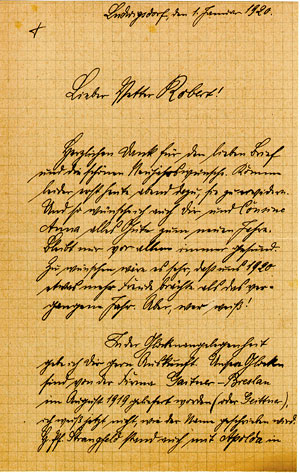 Ludwigsdorf, den 1. Januar 1920.
Lieber Vetter Robert!
Herzlichen Dank für den lieben Brief
und die schönen Neujahrswünsche. Komme
leider erst heute abend dazu, sie zu erwidern.
Und so wünsche ich auch dir und Cousine
Anna alles Gute zum neuen Jahre.
Bleibt mir vor allem immer gesund.
Zu wünschen wäre es sehr, daß uns 1920
etwas mehr Freude brächte als das ver-
gangene Jahr. Aber, wer weiß!
In der Glockenangelegenheit
gebe ich dir gern Auskunft. Unsre Glocken
sind von der Firma Geitner-Breslau
im August 1919 geliefert worden (oder Geittner),
ich weiß jetzt nicht, wie der Name geschrieben wird.
stand auch mit Apolda in